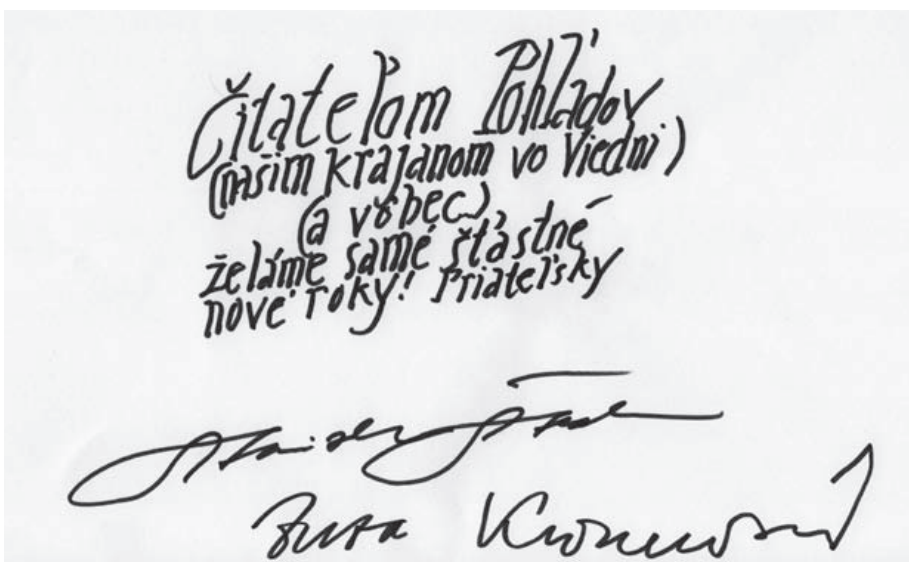 Čitateľom Pohľadov
(našim krajanom vo Viedni)
(a vôbec)
želáme samé šťastné
nové roky! Priateľsky
Stanislav Štepka
Zuza Kronerová